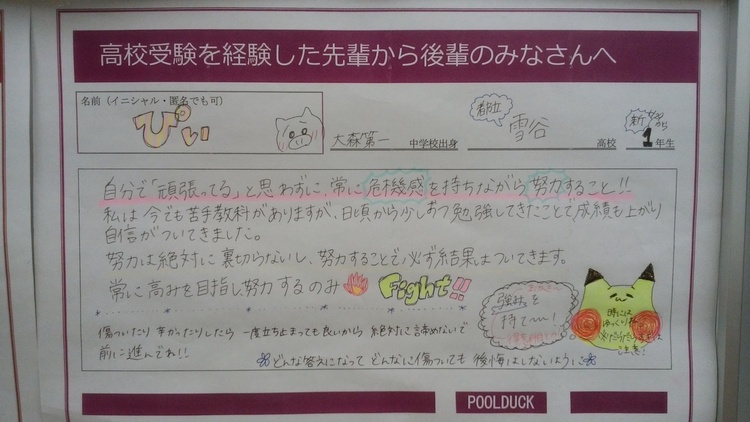 高校受験を経験した先輩から後輩のみなさんへ
名前（イニシャル・匿名でも可）
ぴぃ
大森第一 中学校出身
都立 雪谷 高校
新 1年生
自分で「頑張ってる」と思わずに、常に危機感を持ちながら努力すること!!
私は今でも苦手教科がありますが、日頃から少しずつ勉強してきたことで成績も上がり
自信がついてきました。
努力は絶対に裏切らないし、努力することで必ず結果はついてきます。
常に高みを目指し努力するのみ
Fight!!
傷ついたり辛かったりしたら 一度立ち止まっても良いから 絶対に諦めないで
前に進んでね!!
どんな答えになって どんなに傷ついても 後悔はしないように
強みを
持て〜!
時には
ゆっくり
POOLDUCK